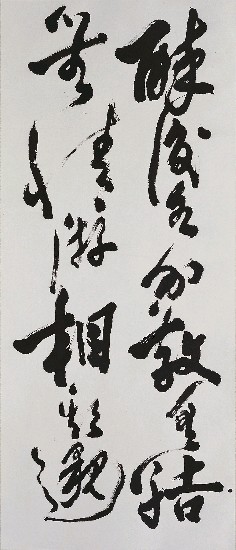 醉後各分散永結
無情游相期邈